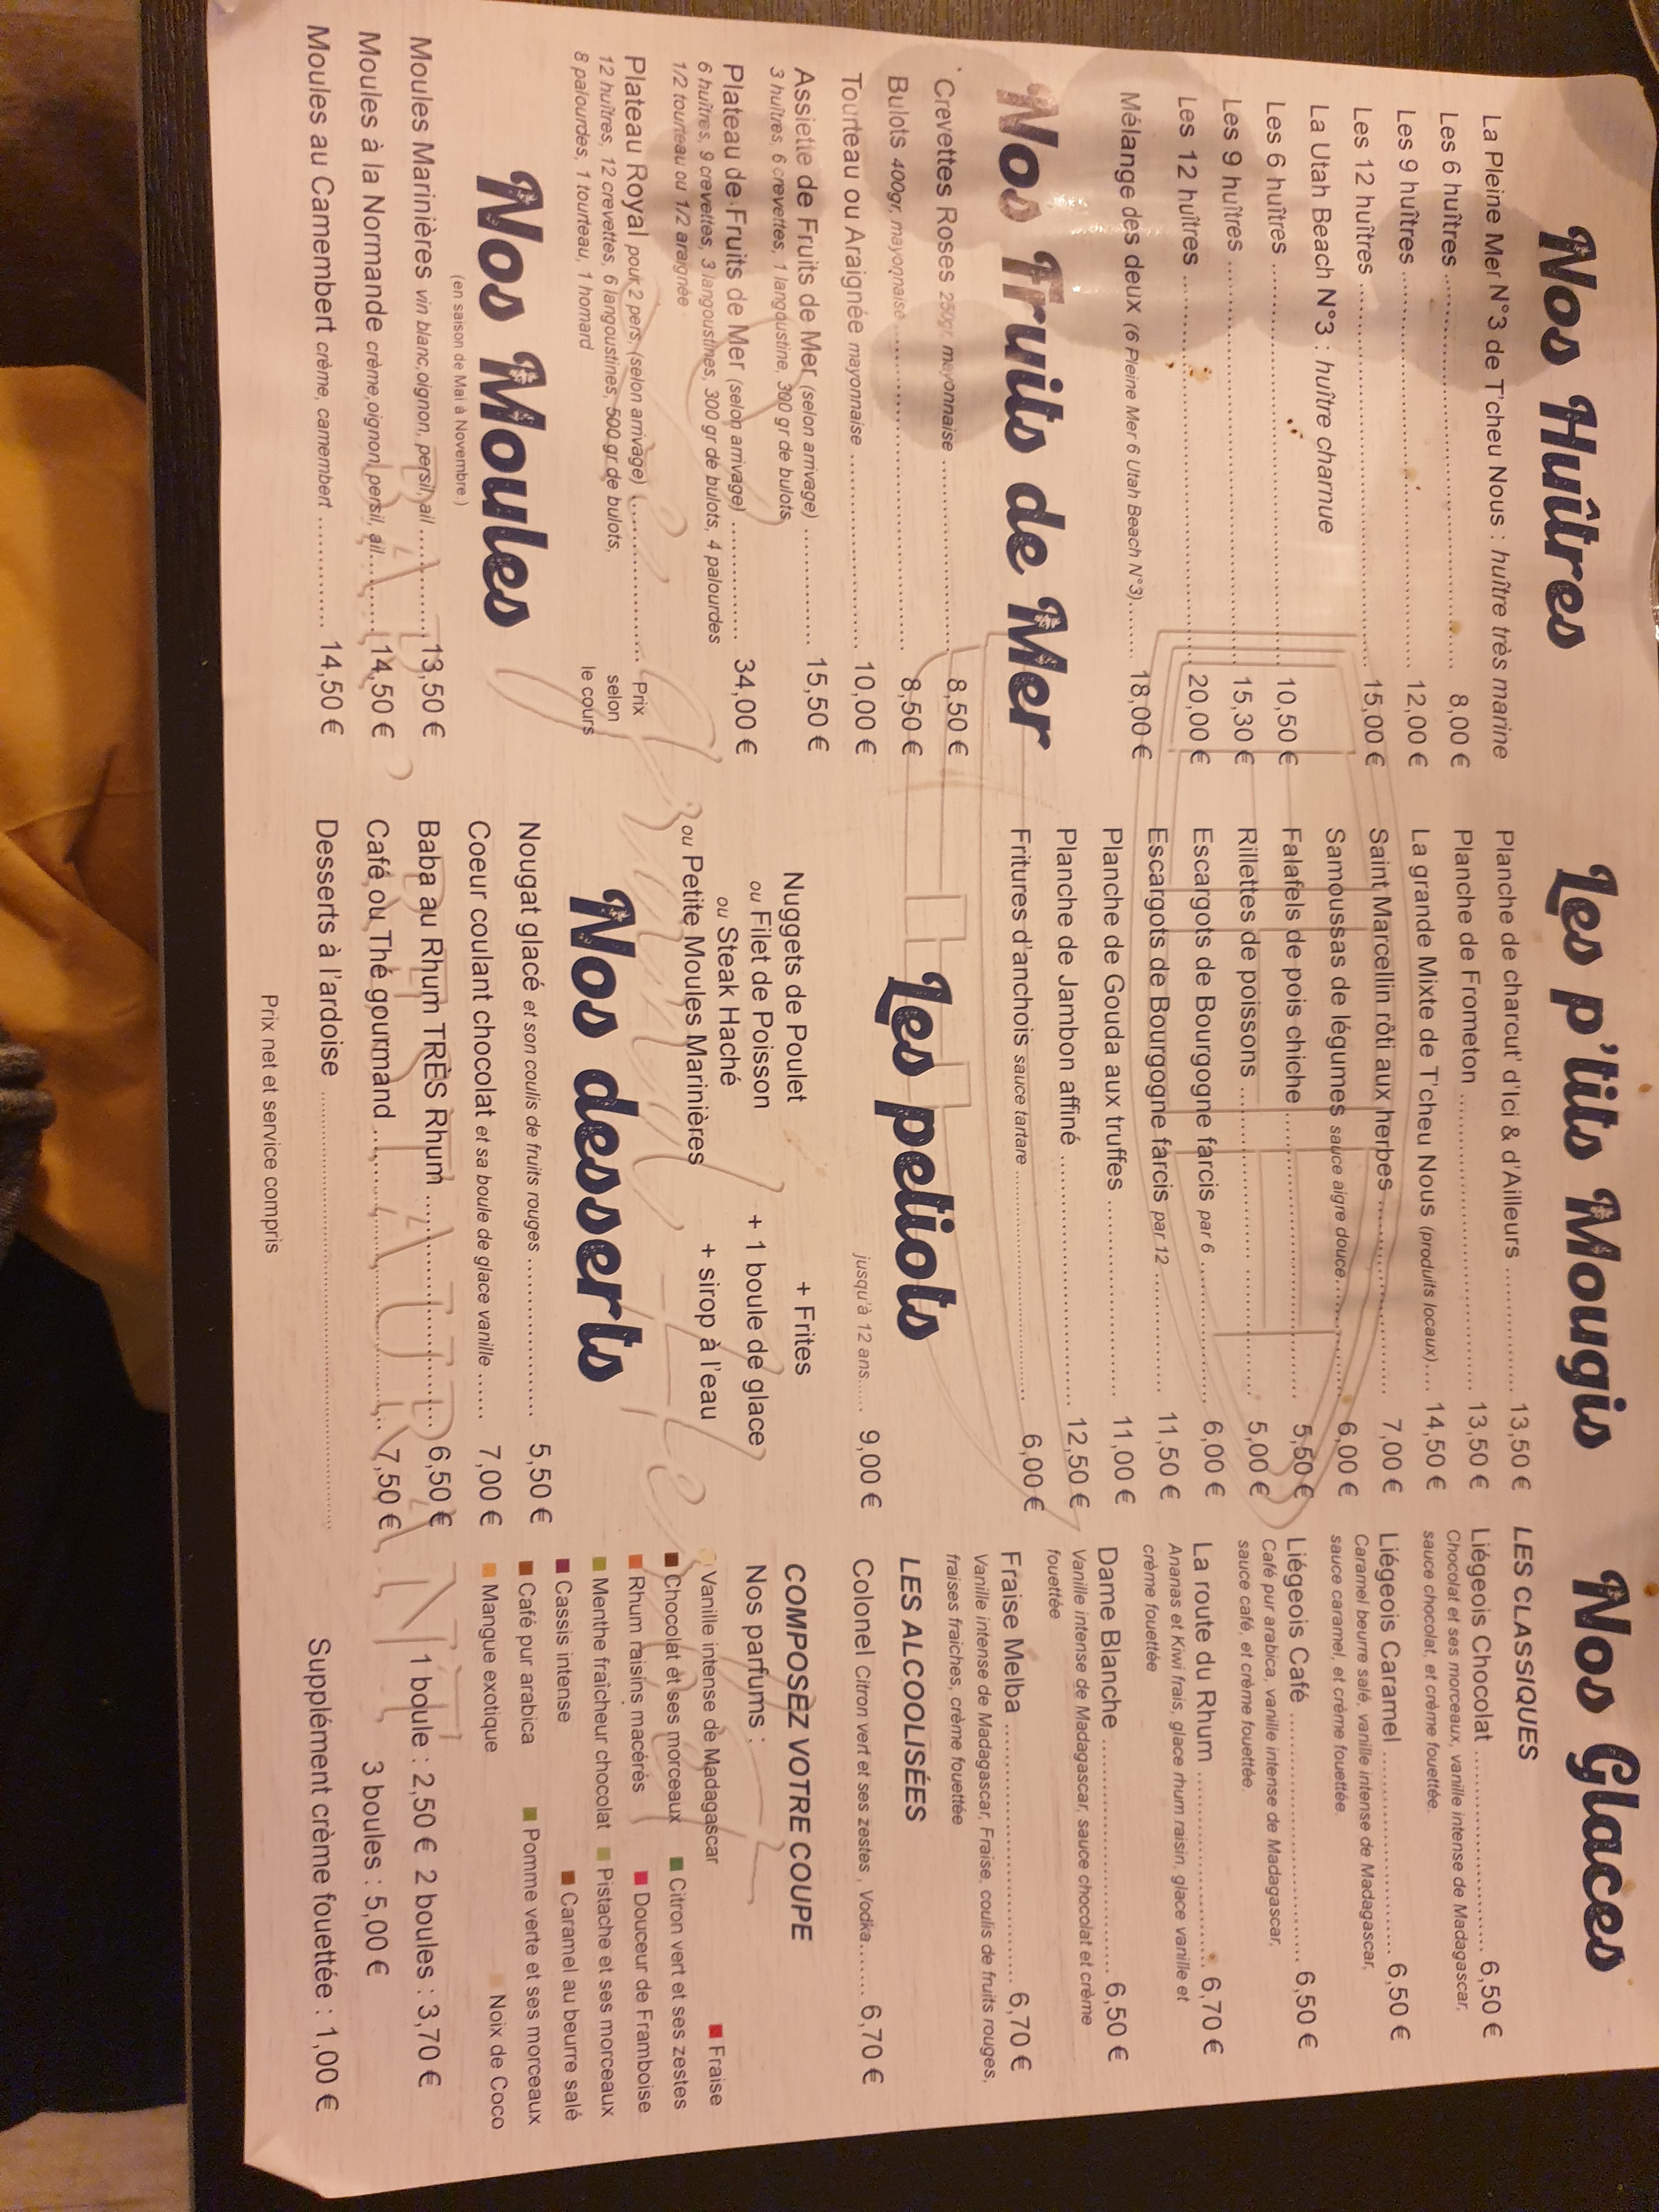 Nos Huîtres
La Pleine Mer N°3 de T'cheu Nous : huître très marine
Les 6 huîtres .......... 8,00 €
Les 9 huîtres .......... 12,00 €
Les 12 huîtres .......... 15,00 €
La Utah Beach N°3 : huître charnue
Les 6 huîtres .......... 10,50 €
Les 9 huîtres .......... 15,30 €
Les 12 huîtres .......... 20,00 €
Mélange des deux (6 Pleine Mer 6 Utah Beach N°3)...... 18,00 €
Nos fruits de Mer
Crevettes Roses 250gr, mayonnaise .......... 8,50 €
Bulots 400gr, mayonnaise .......... 8,50 €
Tourteau ou Araignée mayonnaise .......... 10,00 €
Assiette de Fruits de Mer (selon arrivage) .......... 15,50 €
3 huîtres, 6 crevettes, 1 langoustine, 300 gr de bulots
Plateau de Fruits de Mer (selon arrivage) .......... 34,00 €
6 huîtres, 9 crevettes, 3 langoustines, 300 gr de bulots, 4 palourdes
1/2 tourteau ou 1/2 araignée
Plateau Royal pour 2 pers. (selon arrivage) .......... Prix
12 huîtres, 12 crevettes, 6 langoustines, 500 gr de bulots, selon
8 palourdes, 1 tourteau, 1 homard le cours
Nos Moules
(en saison de Mai à Novembre)
Moules Marinières vin blanc,oignon, persil, ail .......... 13,50 €
Moules à la Normande crème,oignon, persil, ail .......... 14,50 €
Moules au Camembert crème, camembert .......... 14,50 €
Les p'tits Mougis
Planche de charcut' d'Ici & d'Ailleurs .......... 13,50 €
Planche de Frometon .......... 13,50 €
La grande Mixte de T'cheu Nous (produits locaux).... 14,50 €
Saint Marcellin rôti aux herbes .......... 7,00 €
Samoussas de légumes sauce aigre douce .......... 6,00 €
Falafels de pois chiche .......... 5,50 €
Rillettes de poissons .......... 5,00 €
Escargots de Bourgogne farcis par 6 .......... 6,00 €
Escargots de Bourgogne farcis par 12 .......... 11,50 €
Planche de Gouda aux truffes .......... 11,00 €
Planche de Jambon affiné .......... 12,50 €
Fritures d'anchois sauce tartare .......... 6,00 €
Les petiots
jusqu'à 12 ans...... 9,00 €
Nuggets de Poulet
ou Filet de Poisson
ou Steak Haché
ou Petite Moules Marinières
+ Frites
+ 1 boule de glace
+ sirop à l'eau
Nos desserts
Nougat glacé et son coulis de fruits rouges .......... 5,50 €
Coeur coulant chocolat et sa boule de glace vanille ...... 7,00 €
Baba au Rhum TRÈS Rhum .......... 6,50 €
Café ou Thé gourmand .......... 7,50 €
Desserts à l'ardoise ..........
Prix net et service compris
Nos Glaces
LES CLASSIQUES
Liégeois Chocolat .......... 6,50 €
Chocolat et ses morceaux, vanille intense de Madagascar,
sauce chocolat, et crème fouettée.
Liégeois Caramel .......... 6,50 €
Caramel beurre salé, vanille intense de Madagascar,
sauce caramel, et crème fouettée.
Liégeois Café .......... 6,50 €
Café pur arabica, vanille intense de Madagascar,
sauce café, et crème fouettée.
La route du Rhum .......... 6,70 €
Ananas et Kiwi frais, glace rhum raisin, glace vanille et
crème fouettée
Dame Blanche .......... 6,50 €
Vanille intense de Madagascar, sauce chocolat et crème
fouettée
Fraise Melba .......... 6,70 €
Vanille intense de Madagascar, Fraise, coulis de fruits rouges,
fraises fraiches, crème fouettée
LES ALCOOLISÉES
Colonel Citron vert et ses zestes , Vodka...... 6,70 €
COMPOSEZ VOTRE COUPE
Nos parfums :
Vanille intense de Madagascar Fraise
Chocolat et ses morceaux Citron vert et ses zestes
Rhum raisins macérés Douceur de Framboise
Menthe fraîcheur chocolat Pistache et ses morceaux
Cassis intense Caramel au beurre salé
Café pur arabica Pomme verte et ses morceaux
Mangue exotique Noix de Coco
1 boule : 2,50 € 2 boules : 3,70 €
3 boules : 5,00 €
Supplément crème fouettée : 1,00 €